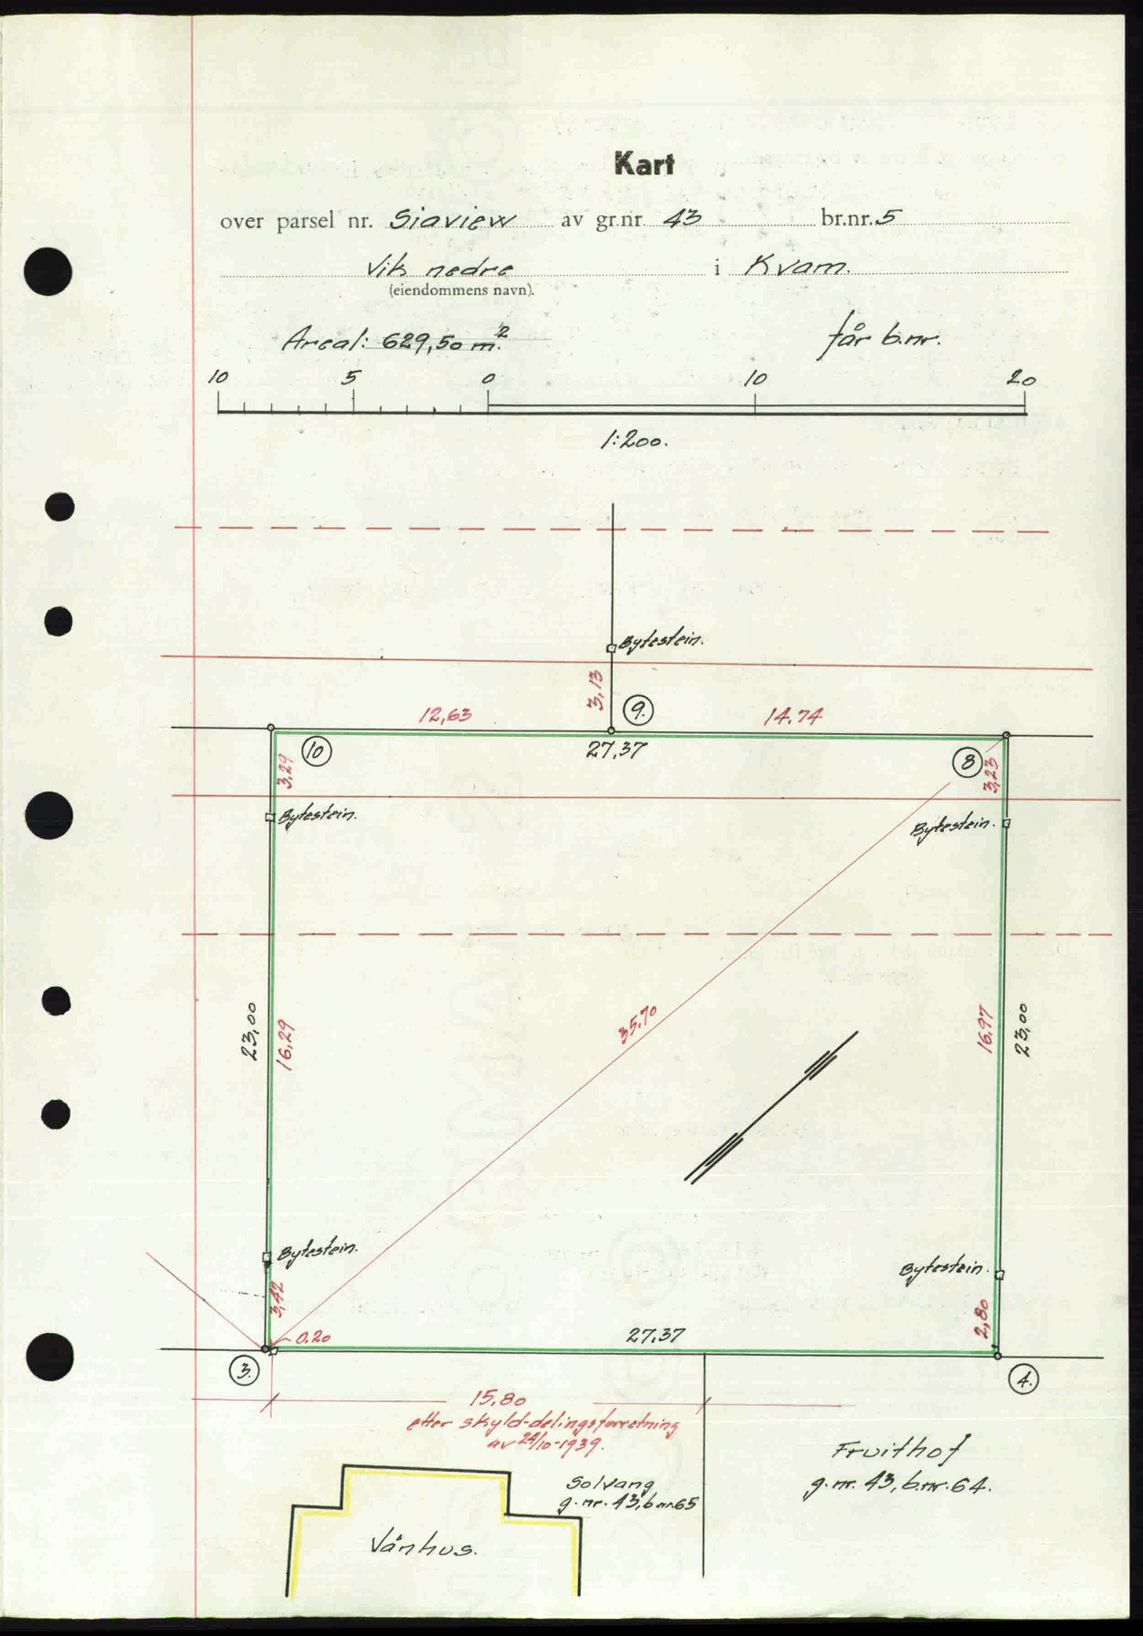 Kart
over parsel nr. Siaview av gr.nr. 43 br.nr. 5
Vik nedre i Kvam.
(eiendommens navn).
Areal: 629,50 m.²
får b.nr.
10 5 0 10 20
1:200.
Bytestein.
3,13
9.
12,63
14.74
27,37
10
8
3,29
3,23
Bytestein.
Bytestein.
35.70
23,00
16,29
16.97
23,00
Bytestein.
Bytestein.
3,42
2,80
0.20
27,37
3.
4.
15.80
etter skyld-delingsforretning
av 24/10-1939.
Solvang
g.nr. 43, b.nr. 65
Fruithof
g.nr. 43, b.nr. 64.
Vånhus.